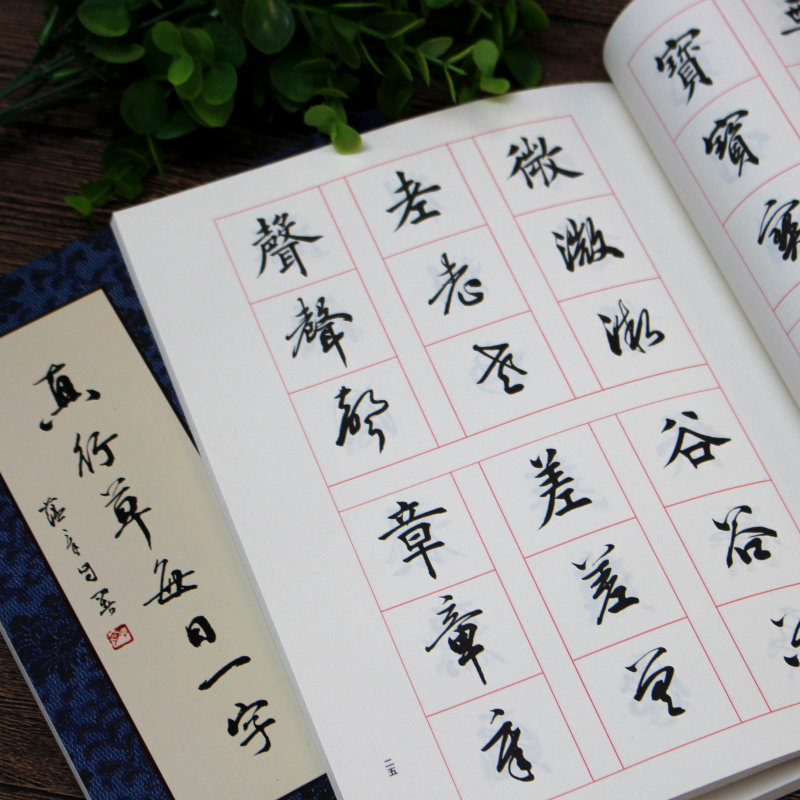 真行草每日一字
寶寶寶
微微微
老老老
聲聲聲
谷谷
差差差
章章章
二五